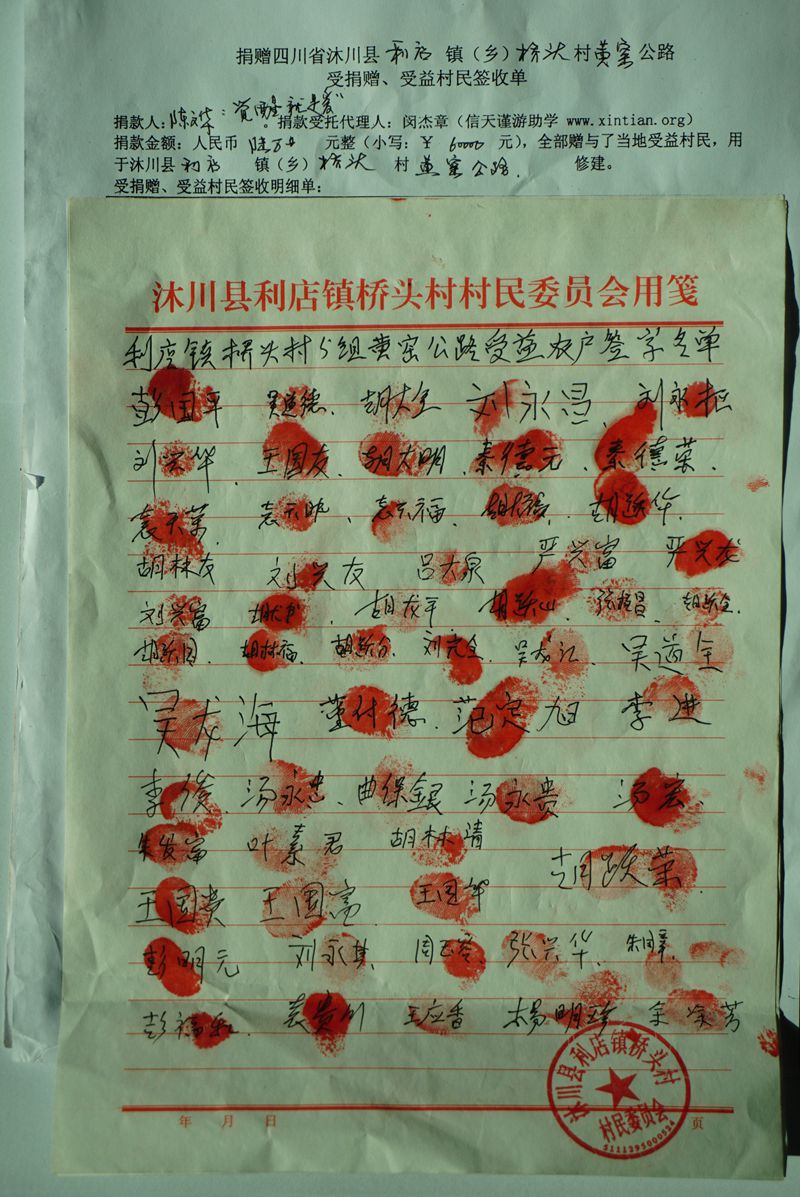 捐赠四川省沐川县利店镇（乡）桥头村黄窑公路
受捐赠、受益村民签收单
捐款人：陈文华：“觉醒就是爱”。捐款受托代理人：闵杰章（信天谨游助学 www.xintian.org）
捐款金额：人民币陆万 元整（小写：¥ 60000 元），全部赠与了当地受益村民，用
于沐川县利店镇（乡）桥头村黄窑公路. 修建。
受捐赠、受益村民签收明细单：
沐川县利店镇桥头村村民委员会用笺
利店镇桥头村5组黄窑公路受益农户签字名单
彭国平 吴道德、胡大全 刘永昌、刘永
刘兴华、王国友、胡大明、秦德元、秦德荣、
袁天万、袁天明、袁天福、胡跃华.
胡林友 刘兴友 吕大泉 严兴富 严兴龙
刘兴富 胡龙平、胡跃山、张
胡林福、刘元全、吴龙江、吴道全
吴龙海 董付德、范定旭 李进
李俊、汤永忠、曲保银 汤永贵 汤宏.
朱发富 叶素君 胡林清
胡跃荣.
王国贵 王国富 王国华
彭明元 刘永其、周玉 张兴华、
彭福 袁贵川 王应香 杨明 余 芳
沐川县利店镇桥头村
村民委员会
年 月 日
页